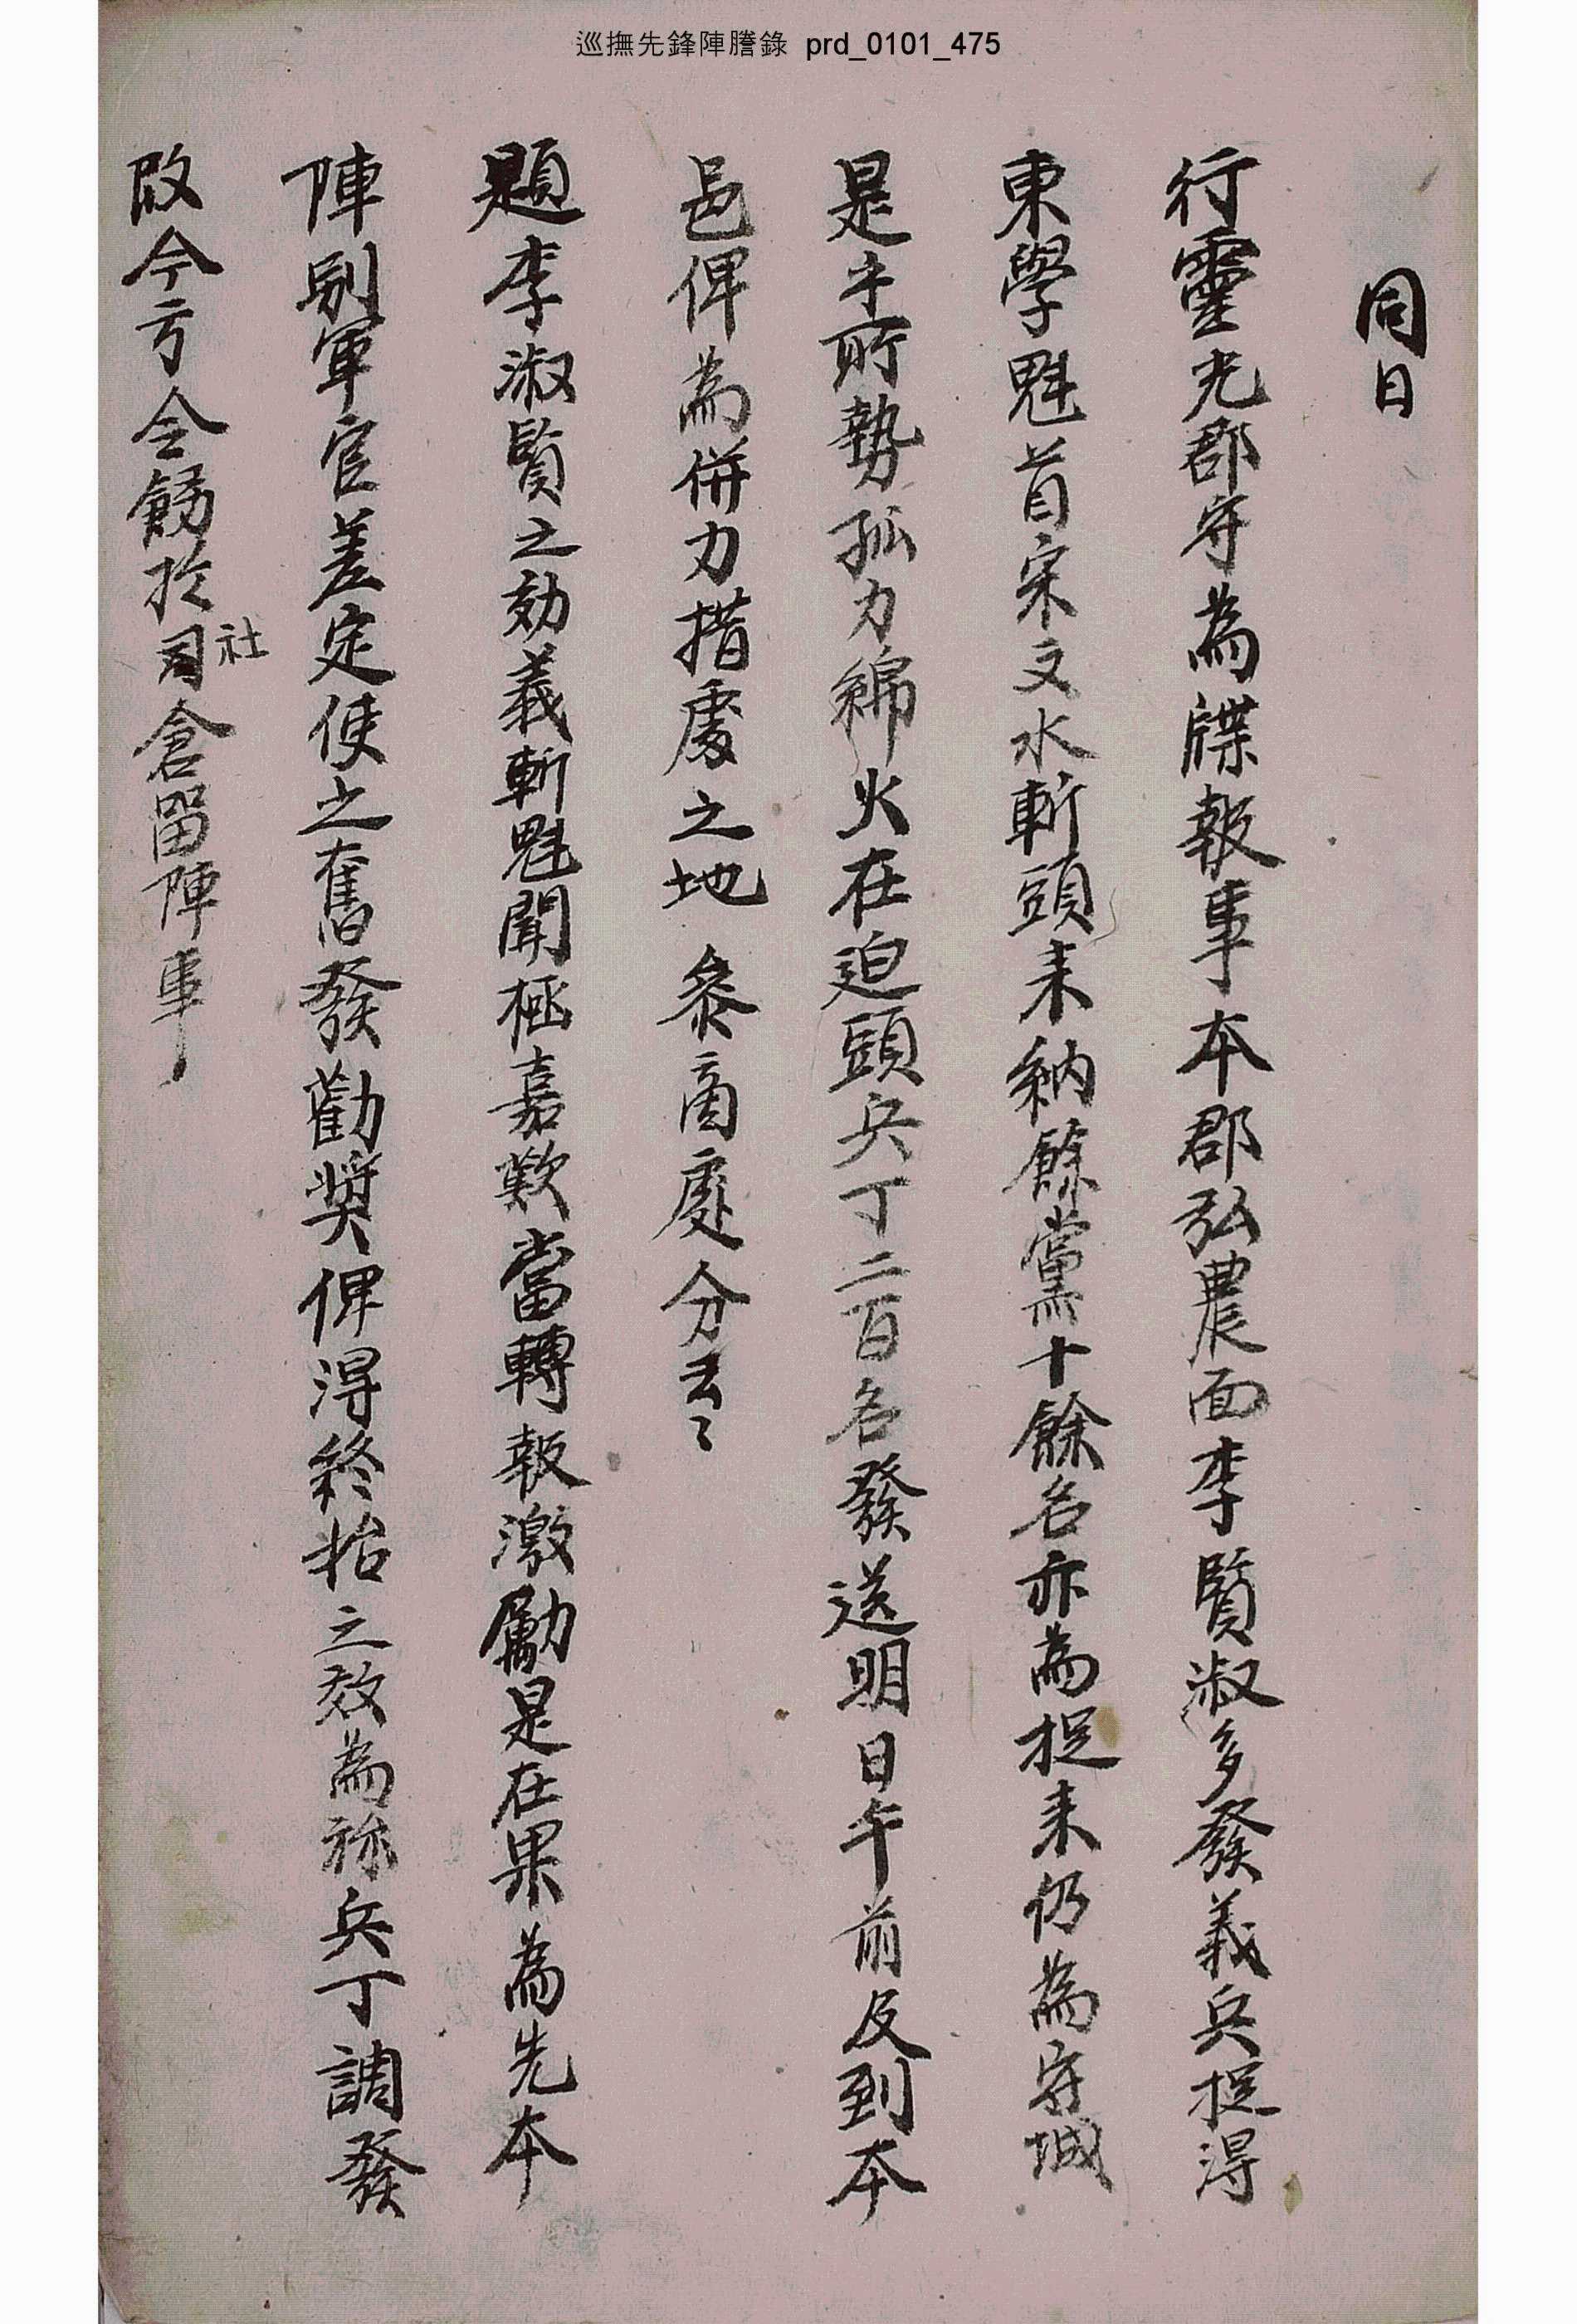 巡撫先鋒陣謄錄 prd_0101_475
同日
行靈光郡守為牒報事本郡弘農面李賢淑多發義兵捉得
東學魁首宋文水斬頭来納餘黨十餘名亦為捉来仍為守城
是乎所勢孤力綿火在迫頭兵丁二百名發送明日午前及到本
邑俾為併力措處之地叅商處分云々
題李淑賢之効義斬魁聞極嘉歎當轉報激勵是在果為先本
陣別軍官差定使之奮發勸奬俾得終始之效為㫆兵丁調發
段今方令飭於社倉留陣事